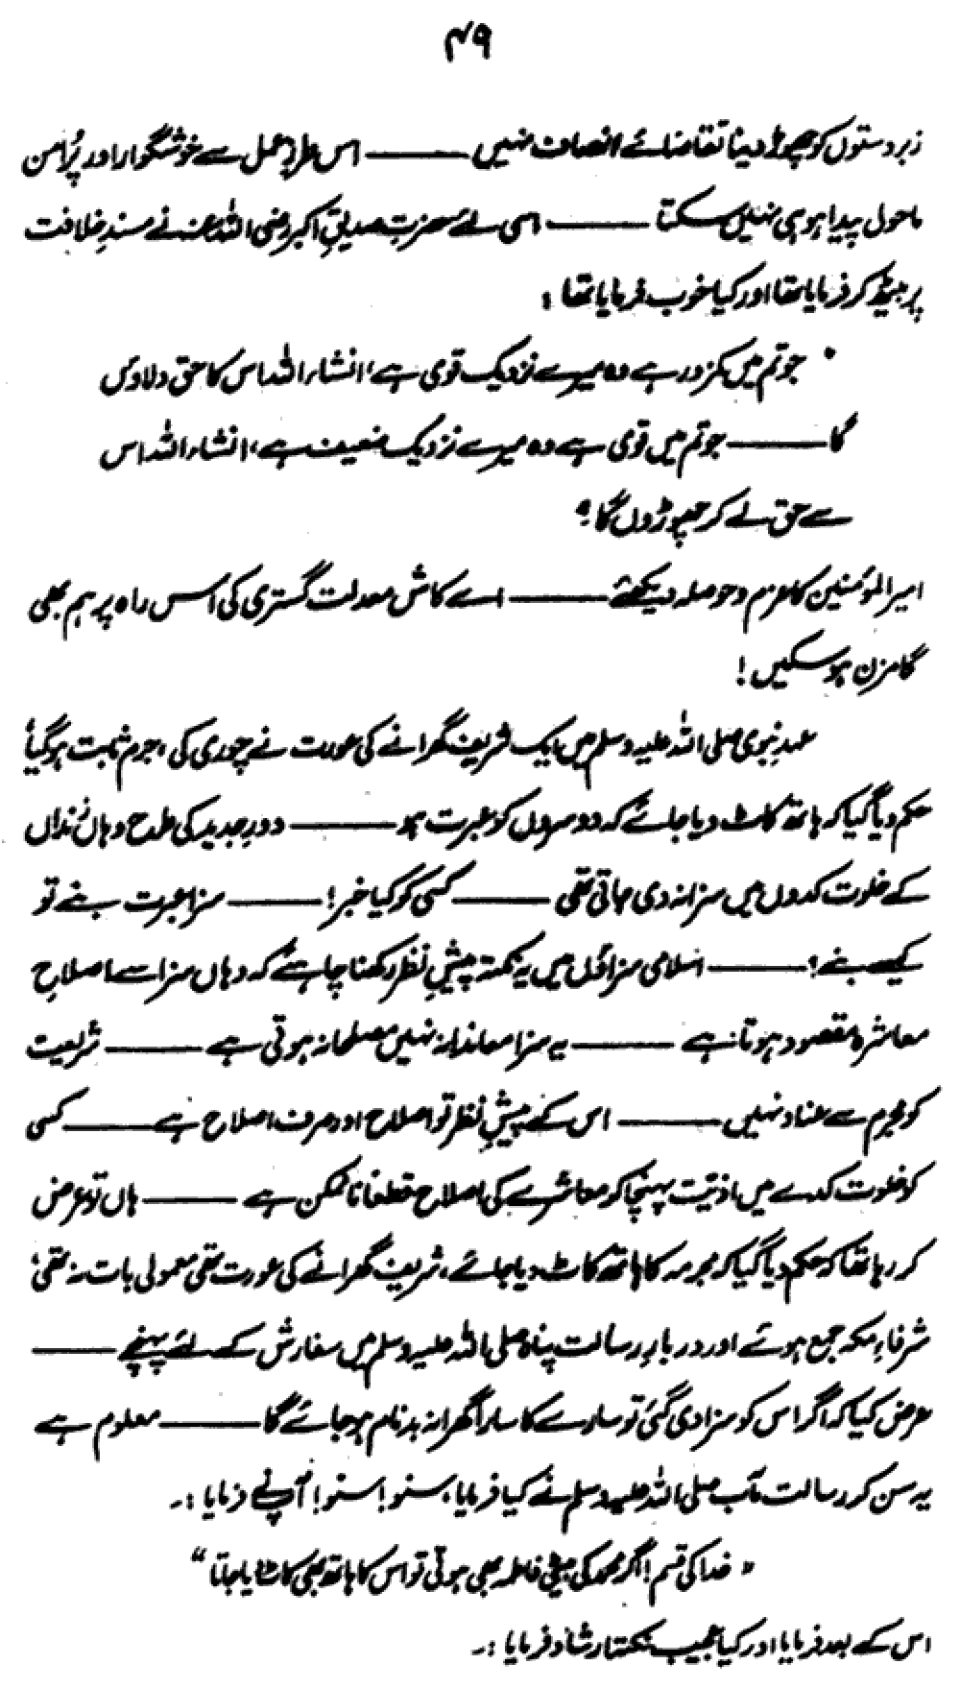 ۴۹
زبردستوں کو چھوڑ دینا تقاضائے انصاف نہیں ——— اس طرزِ عمل سے خوشگوار اور پُرامن
ماحول پیدا ہو ہی نہیں سکتا ——— اسی لئے حضرت صدیقِ اکبر رضی اللہ عنہ نے مسندِ خلافت
پر بیٹھ کر فرمایا تھا اور کیا خوب فرمایا تھا :
" جو تم میں کمزور ہے وہ میرے نزدیک قوی ہے، انشاء اللہ اس کا حق دلاؤں
گا ——— جو تم میں قوی ہے وہ میرے نزدیک ضعیف ہے، انشاء اللہ اس
سے حق لے کر چھوڑوں گا "
امیر المؤمنین کا عزم و حوصلہ دیکھئے ——— اے کاش معدلت گستری کی اس راہ پر ہم بھی
گامزن ہو سکیں !
عہدِ نبوی صلی اللہ علیہ وسلم میں ایک شریف گھرانے کی عورت نے چوری کی، جرم ثابت ہو گیا،
حکم دیا گیا کہ ہاتھ کاٹ دیا جائے کہ دوسروں کو عبرت ہو ——— دورِ جدید کی طرح وہاں زنداں
کے خلوت کدوں میں سزا نہ دی جاتی تھی ——— کسی کو کیا خبر ! ——— سزا عبرت بنے تو
کیسے بنے ؟ ——— اسلامی سزاؤں میں یہ نکتہ پیشِ نظر رکھنا چاہئے کہ وہاں سزا سے اصلاحِ
معاشرہ مقصود ہوتا ہے ——— یہ سزا معاندانہ نہیں مصلحانہ ہوتی ہے ——— شریعت
کو مجرم سے عناد نہیں ——— اس کے پیشِ نظر تو اصلاح اور صرف اصلاح ہے ——— کسی
کو خلوت کدے میں اذیّت پہنچا کر معاشرے کی اصلاح قطعاً ناممکن ہے ——— ہاں تو عرض
کر رہا تھا کہ حکم دیا گیا کہ مجرمہ کا ہاتھ کاٹ دیا جائے، شریف گھرانے کی عورت تھی معمولی بات نہ تھی،
شرفاءِ مکہ جمع ہوئے اور دربارِ رسالت پناہ صلی اللہ علیہ وسلم میں سفارش کے لئے پہنچے ———
عرض کیا کہ اگر اس کو سزا دی گئی تو سارے کا سارا گھرانہ بدنام ہو جائے گا ——— معلوم ہے
یہ سن کر رسالت مآب صلی اللہ علیہ وسلم نے کیا فرمایا، سنو ! سنو ! آپ نے فرمایا :۔
" خدا کی قسم ! اگر محمد کی بیٹی فاطمہ بھی ہوتی تو اس کا ہاتھ بھی کاٹا جاتا "
اس کے بعد فرمایا اور کیا عجیب نکتہ ارشاد فرمایا :۔